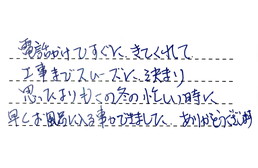 電話かけてすぐに、きてくれて
工事までスムーズに、決まり
思ったよりもこの冬の忙しい時に
早くお風呂に入る事ができました、ありがとうござい